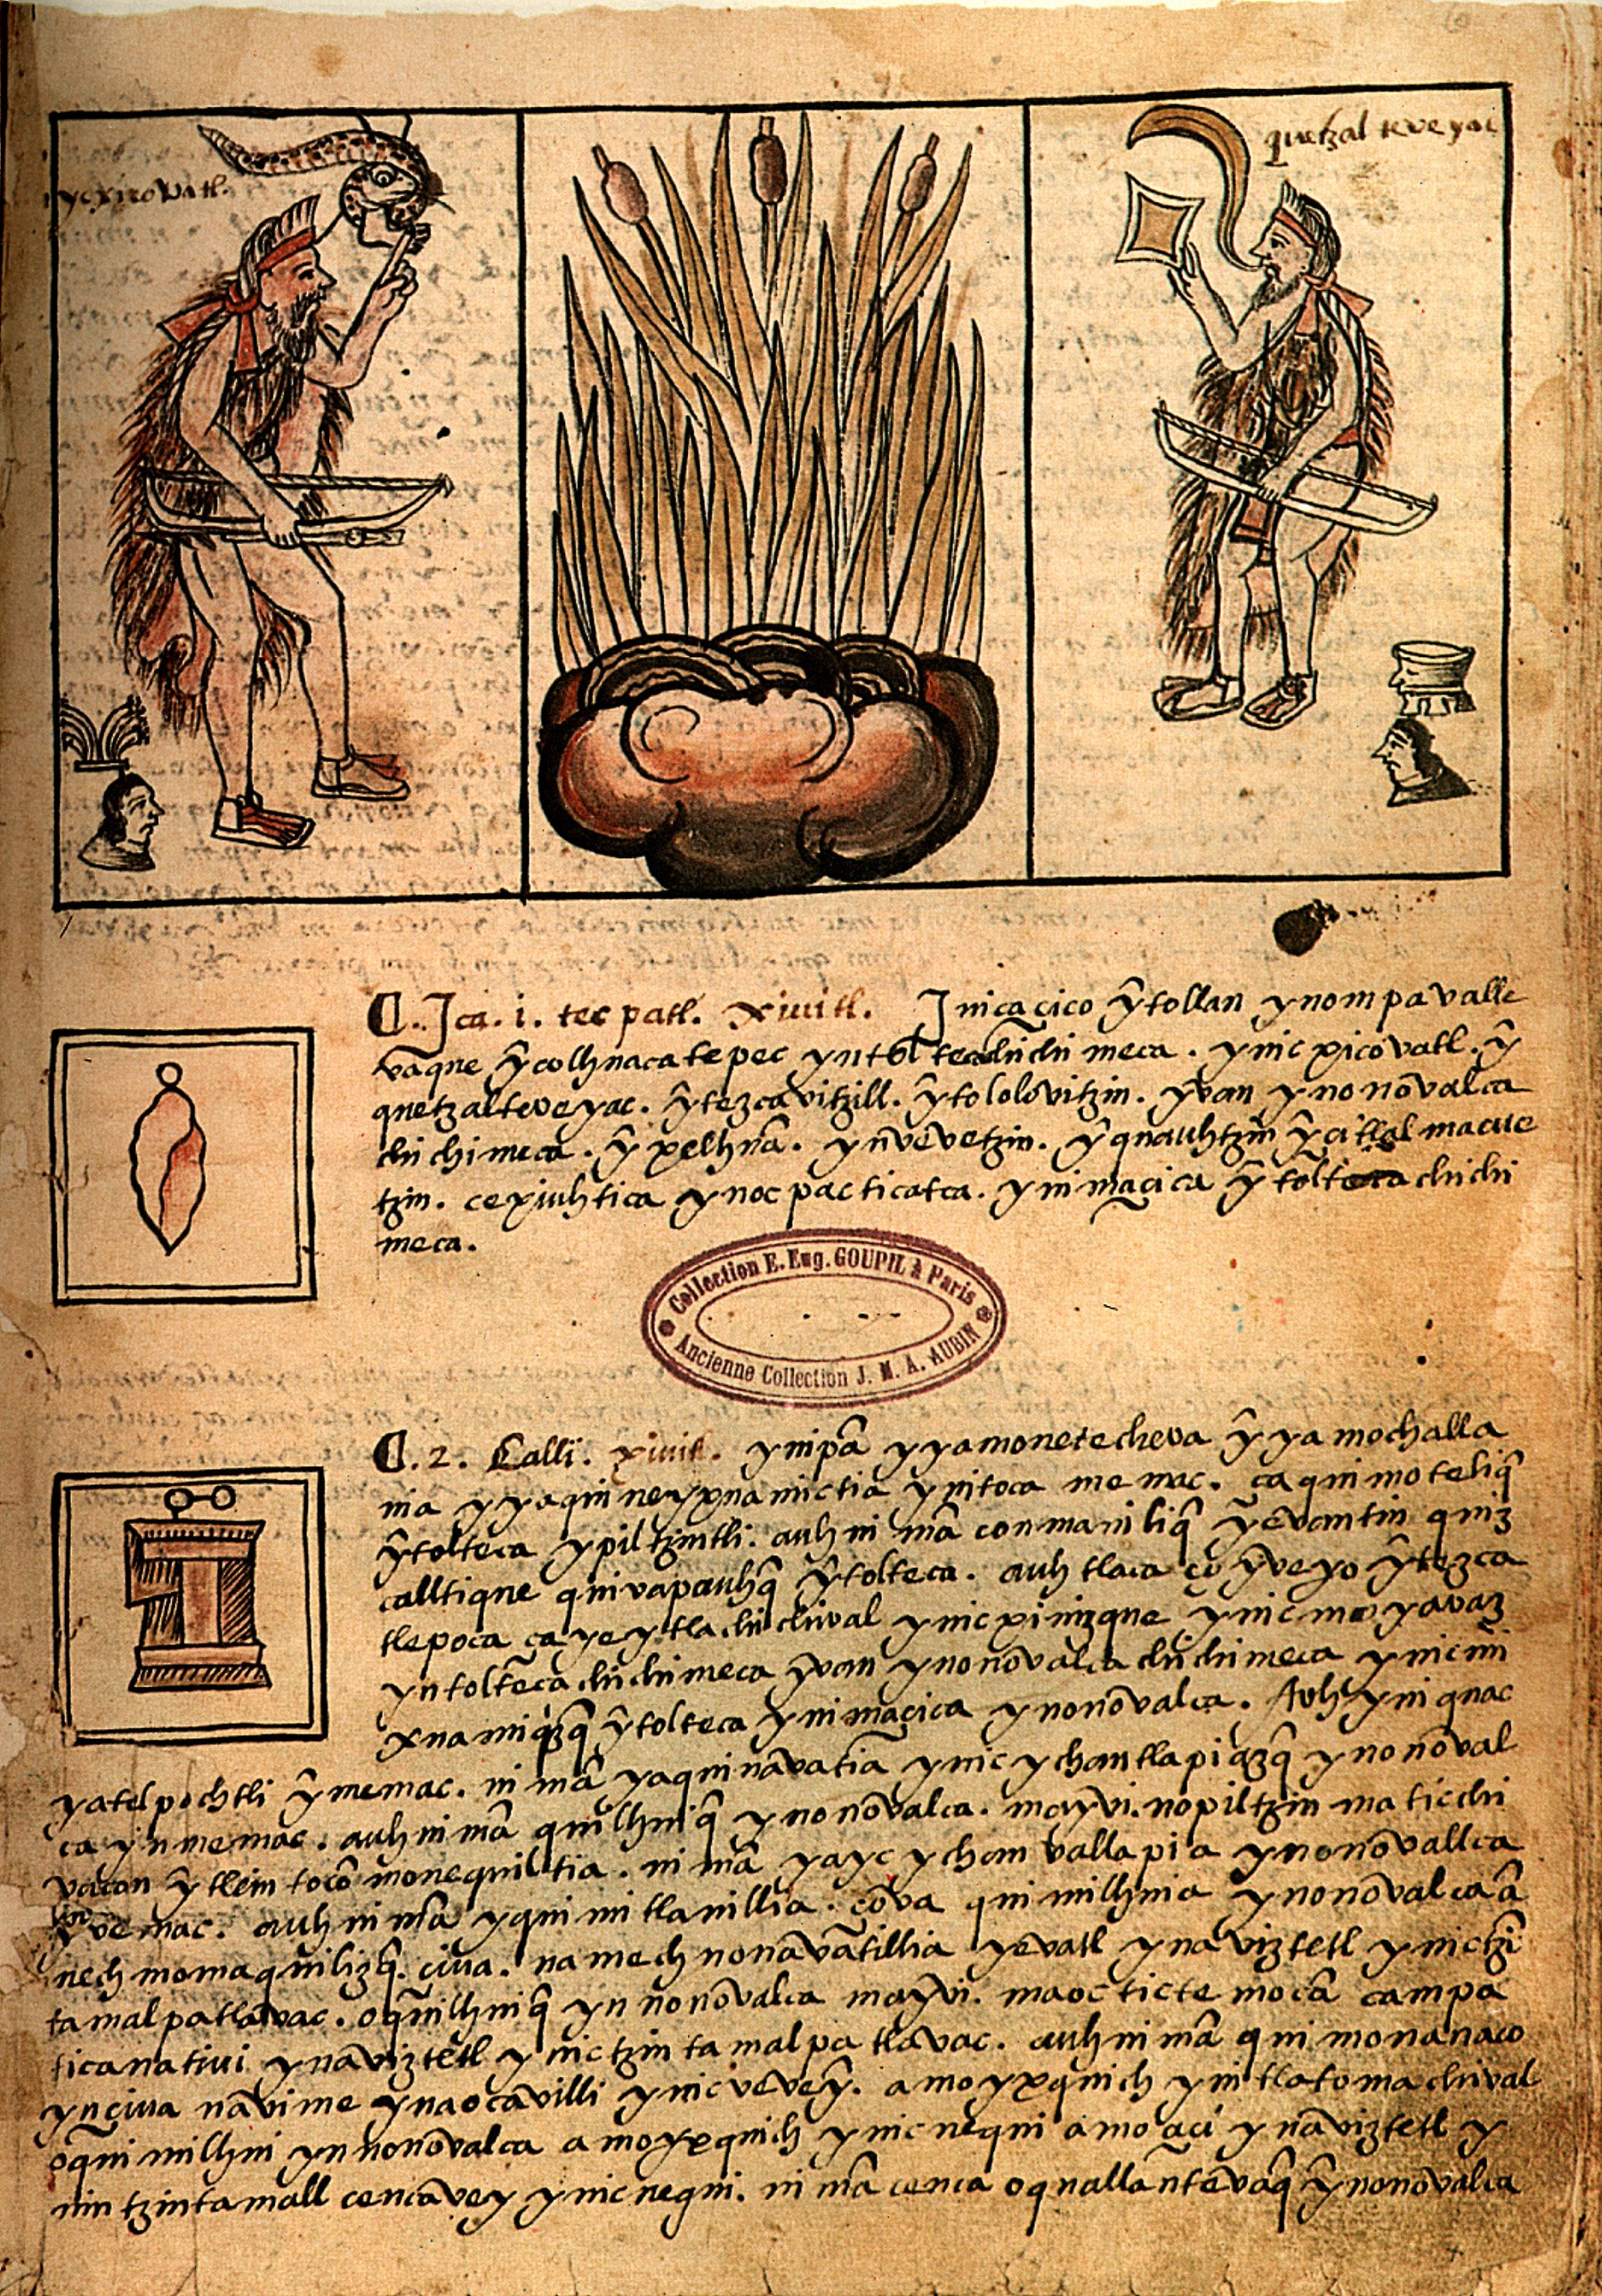 ycxicovatl.
quetzal teveyac
ℂ. Ica. i. tecpatl. xiuitl. Inicacico ŷtollan ynompa valle
vaque ŷcolhuacatepec yntoltecachichimeca. ynicxicovatl. ŷ
quetzalteveyac. ŷtezcavitzill. ŷtololovitzin. ŷvan ynonōvalca
chichimeca. ŷxelhuā. ynvēvetzin. ŷquauhtzin ŷcitlalmacue
tzin. cexiuhtica ynocpacticatca. ynimaçica ŷtoltecachichi
meca.
Collection E. Eug. GOUPIL à Paris
Ancienne Collection J. M. A. AUBIN
ℂ. 2. Calli. xiuitl. ynipā yyamonetecheva ŷyamochalla
nia yyaquineyxnamictia ynitoca memac. ca quimoteliq̄
ŷtolteca ypiltzintli. auh nimā conmaniliq̄ ŷēvantin quiz
calltique quivapauhq̄ ŷtolteca. auh tlaca ço ŷveyo ŷtezca
tlepoca ça yeytlachichival ynicpinizque ynicmoyavaz
yntoltēca chichimeca ŷvan ynonōvalca chichimeca ynicmi
xnamiq̄zq̄ ŷtolteca ynimaçica ynonōvalca. Auh yniquac
yatelpochtli ŷmemac. nimā yaquinavatia ynicychantlapiazq̄ ynonōval
ca ynmemac. auh nimā quilhuiq̄ ynonōvalca. mayvi. nopiltzin maticchi
vacan ŷtlein tocō monequiltia. nimā yayc ychan vallapia ynonōvallca
yvemac. auh nimā yquimitlanillia. çōva quimilhuia ynonōvalca ā
nechmomaquilizq̄. çiua. namechnonavātillia yēvatl ynaviztetl ynictzī
tamalpatlavac. oquilhuiq̄ yn nonōvalca mayvi. maoc ticte mocā campa
ticanatiui ynāviztetl ynictzintamalpatlāvac. auh nimā quimonanaco
ynçiua nāvime ynaocāvilli ynicvēveŷ. amo yxquich ynitlatomachival
oquimilhui ynnonōvalca amo yxquich ynicnequi amo açi ynāviztetl y
nintzintamall cencāvey ynicnequi. nimā cenca oquallāntēvaq̄ ŷnonōvalca